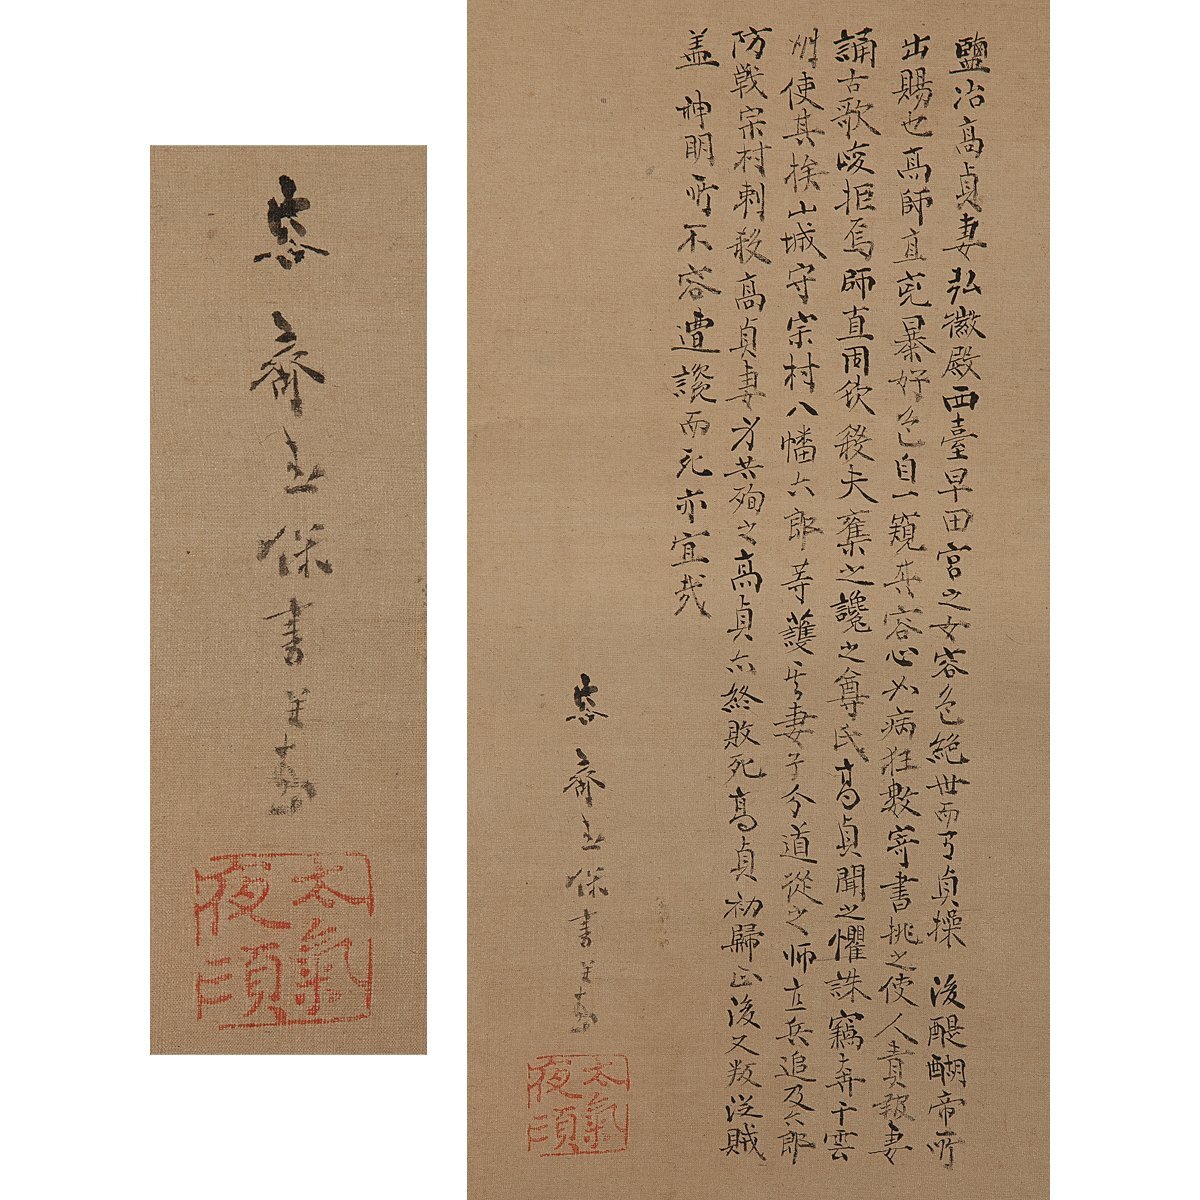 鹽冶高貞妻弘徽殿西臺早田宮之女容色絶世而有貞操 後醍醐帝所
出賜也高師直兇暴好色自一窺其容心如病狂數寄書挑之使人責報妻
誦古歌峻拒焉師直因欲殺夫奪之讒之尊氏高貞聞之懼誅竊奔于雲
州使其族山城守宗村八幡六郎等護其妻子令道從之師直兵追及六郎
防戦宗村刺殺高貞妻身共殉之高貞亦終敗死高貞初歸正後又叛從賊
盖 神明所不容遭讒而死亦宜哉
忠齋 保書并
太氣
夜須
忠齋 保書并
太氣
夜須